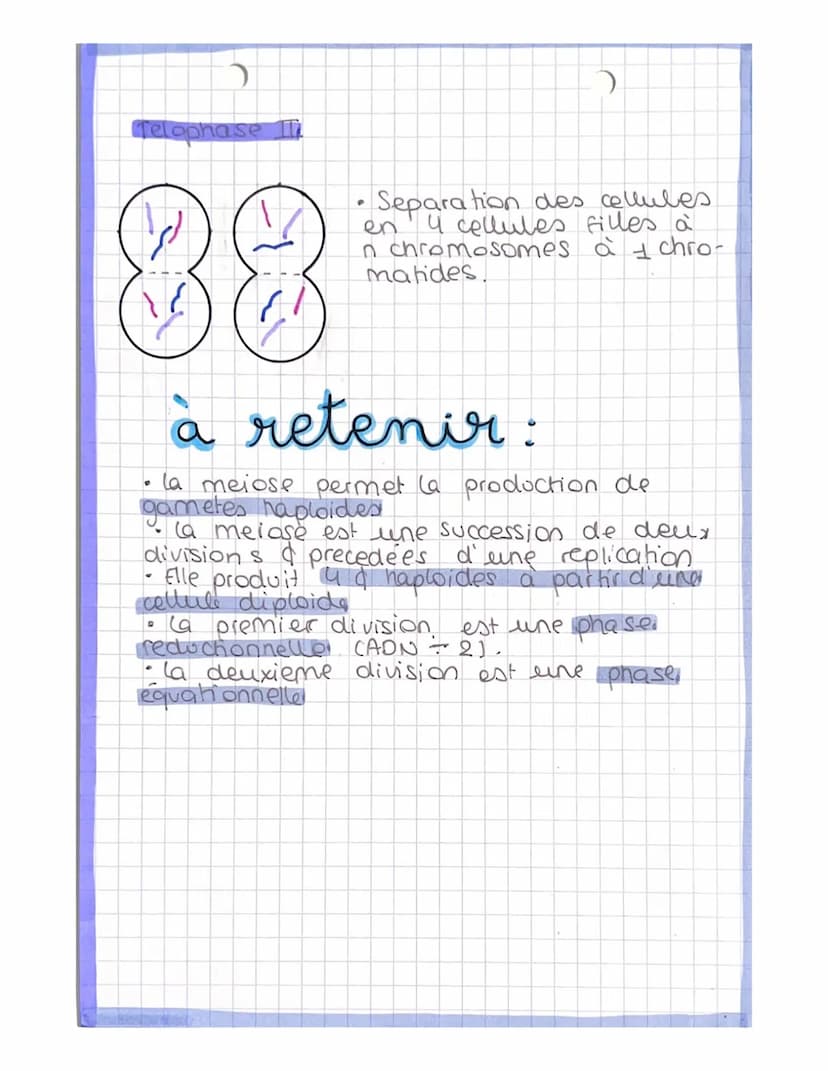 Telophase II
• Separation des cellules
en 4 cellules filles à
n chromosomes à 1 chro-
matides.
à retenir :
• La meiose permet la production de
gametes haploides
• La meiose est une succession de deux
divisions ¢ precedées d'une replication
• Elle produit 4 ¢ haploides à partir d'une
cellule diploide
• La premier division est une phase
reductionnelle (ADN ÷ 2).
• La deuxieme division est une phase
equationnelle